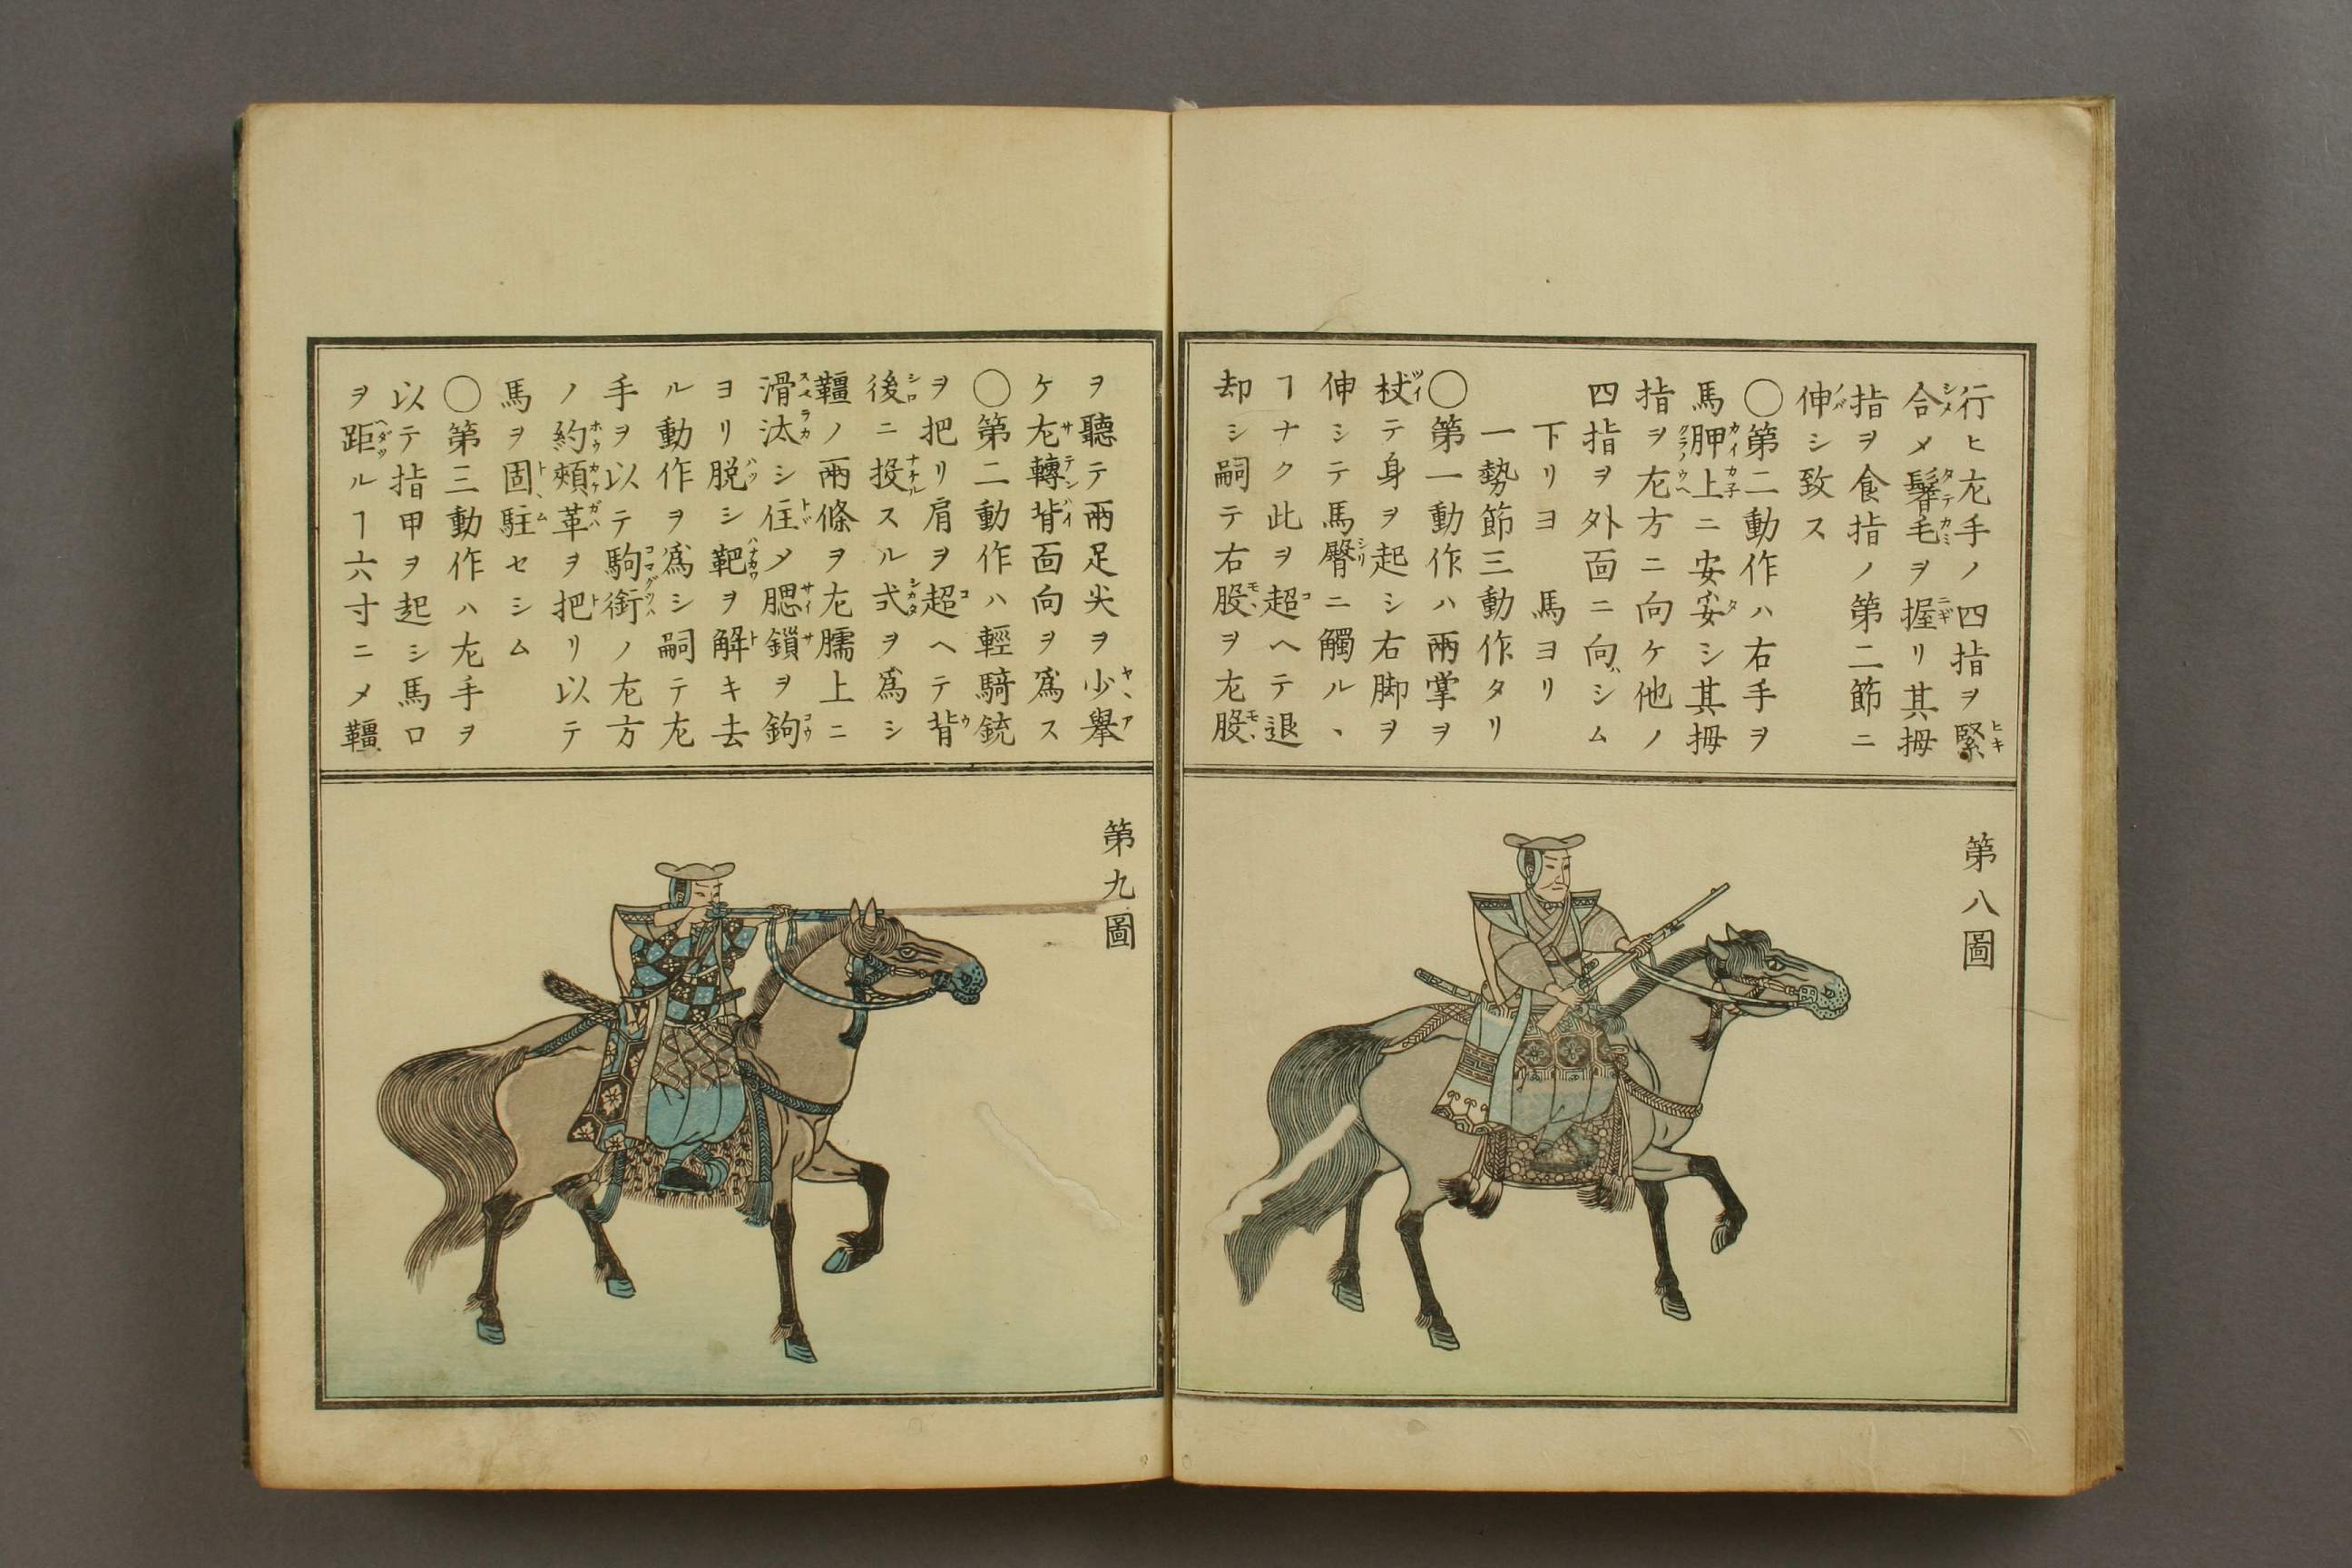 行ヒ左手ノ四指ヲ緊
合メ鬠毛ヲ握リ其拇
指ヲ食指ノ第二節ニ
伸シ致ス
〇第二動作ハ右手ヲ
馬胛上ニ安妥シ其拇
指ヲ左方ニ向ケ他ノ
四指ヲ外面ニ向シム
下リヨ 馬ヨリ
一勢節三動作タリ
〇第一動作ハ兩掌ヲ
杖テ身ヲ起シ右脚ヲ
伸シテ馬臀ニ觸ル丶
ヿナク此ヲ超ヘテ退
却シ嗣テ右股ヲ左股
第八圖
ヲ聽テ兩足尖ヲ少擧
ケ左轉背面向ヲ爲ス
〇第二動作ハ輕騎銃
ヲ把リ肩ヲ超ヘテ背
後ニ投スル弍ヲ爲シ
韁ノ兩條ヲ左臑上ニ
滑汰シ住メ腮鎖ヲ鉤
ヨリ脱シ靶ヲ解キ去
ル動作ヲ爲シ嗣テ左
手ヲ以テ駒銜ノ左方
ノ約頰革ヲ把リ以テ
馬ヲ固駐セシム
〇第三動作ハ左手ヲ
以テ指甲ヲ起シ馬口
ヲ距ルヿ六寸ニメ韁
第九圖